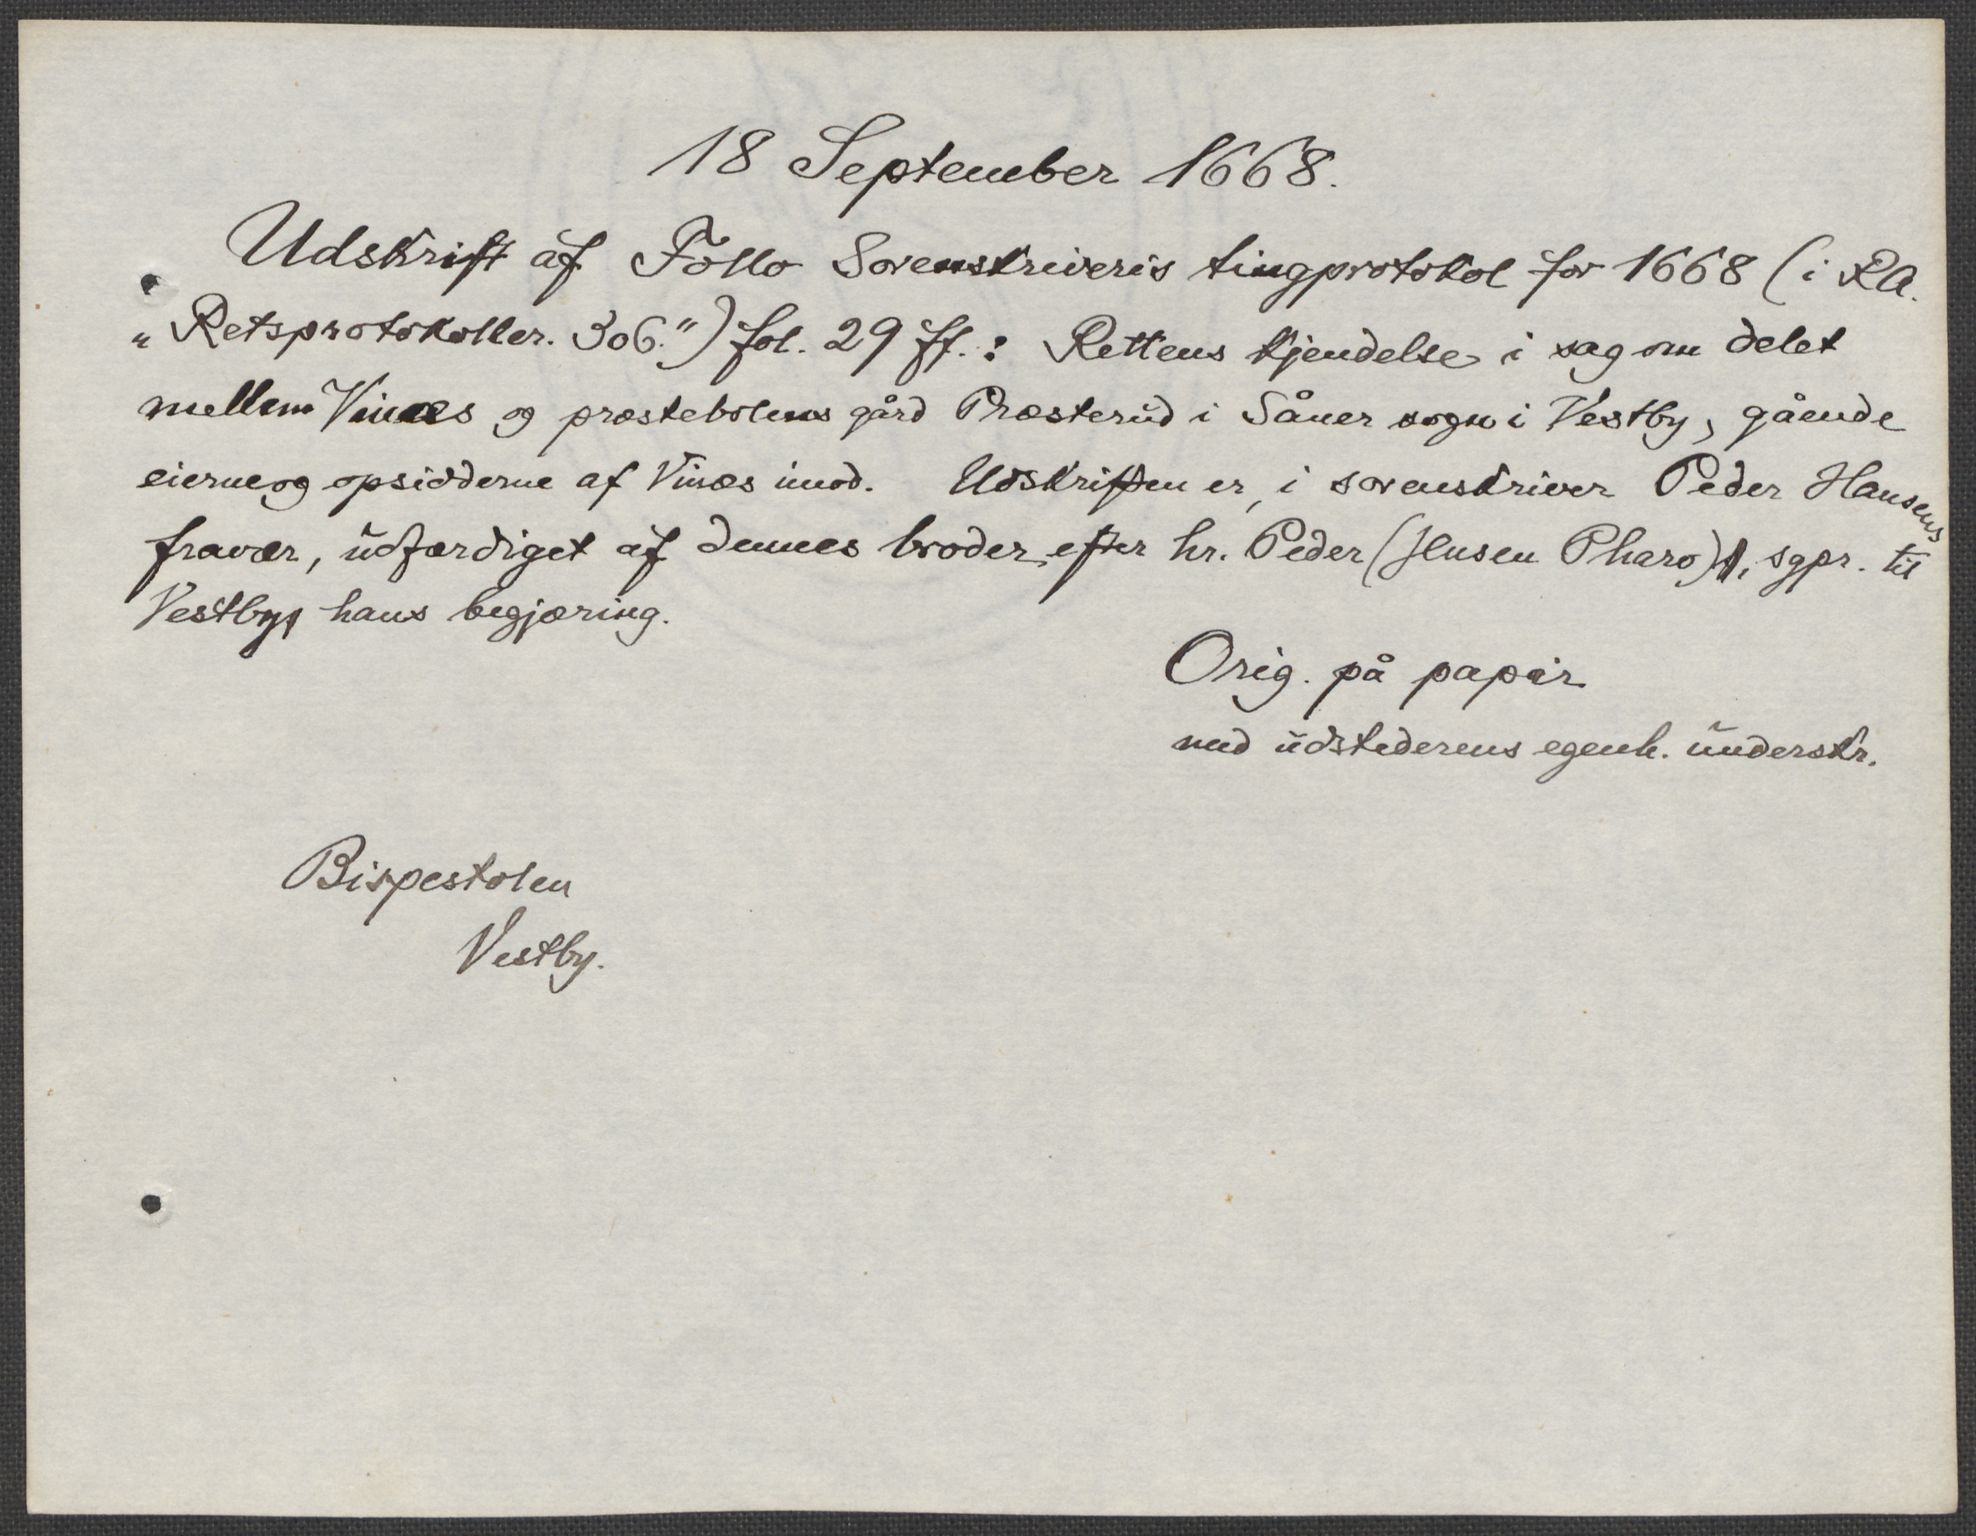 18 September 1668.
Udskrift af Follo Sorenskriveris tingprotokol for 1668 (i RA.
„Retsprotokoller. 306.") fol. 29 ff.: Rettens kjendelse i sag om delet
mellem Vinæs og præstebolens gård Præsterud i Såner sogn i Vestby, gående
eierne og opsidderne af Vinæs imod. Udskriften er, i sorenskriver Peder Hansens
fravær, udfærdiget af dennes broder efter hr. Peder (Jensen Pharo), sgpr. til
Vestby, hans begjæring.
Orig. på papir
med udstederens egenh. underskr.
Bispestolen
Vestby.